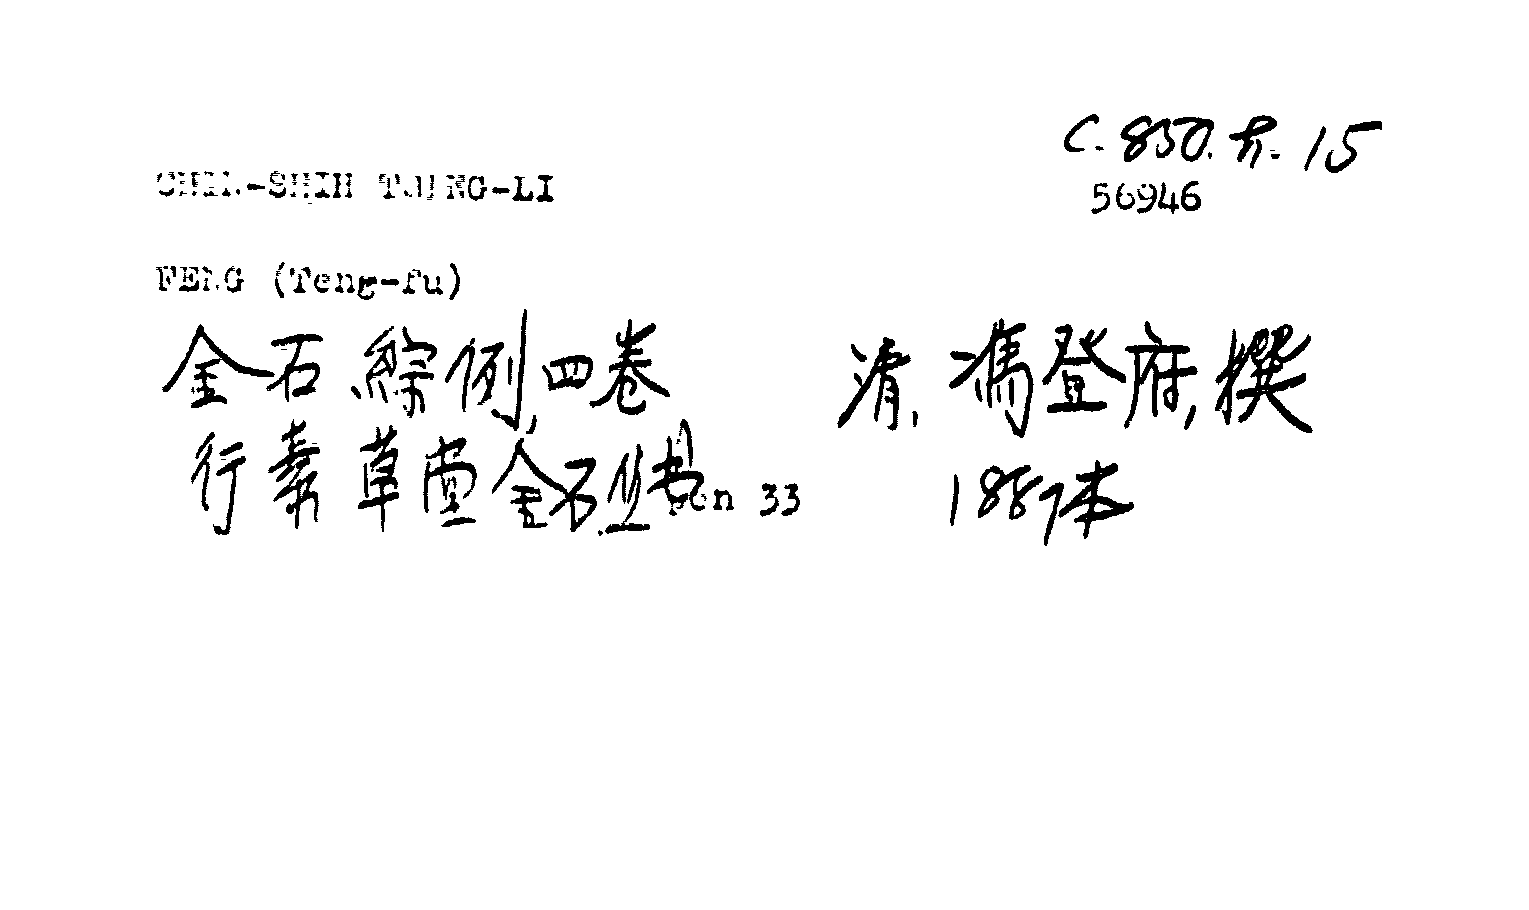 C. 850. h. 15
56946
CHIN-SHIH TSUNG-LI
FENG (Teng-fu)
金石綜例,四卷 清,馮登府,撰
行素草堂金石丛书 pen 33 1887本